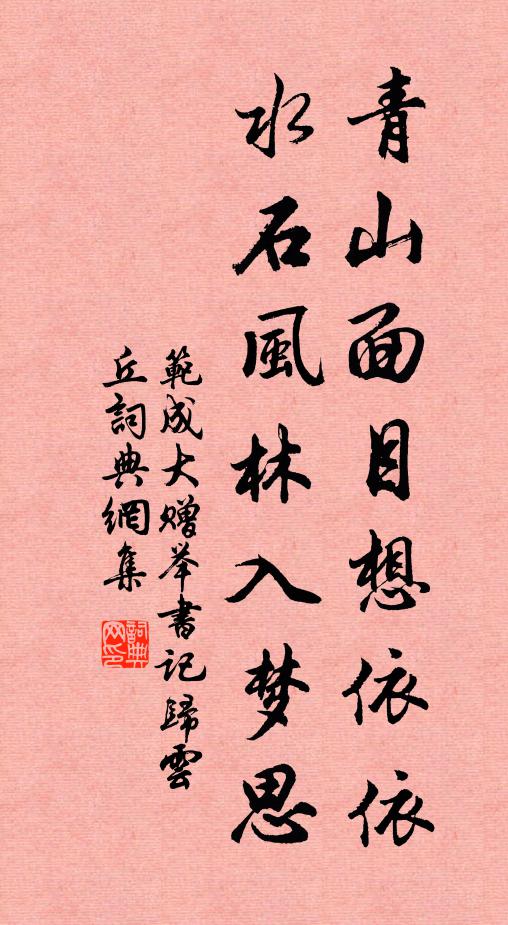 青山面目想依依
水石風林入梦思
範成大赠举書記歸雲
丘詞典網集
詞典網印